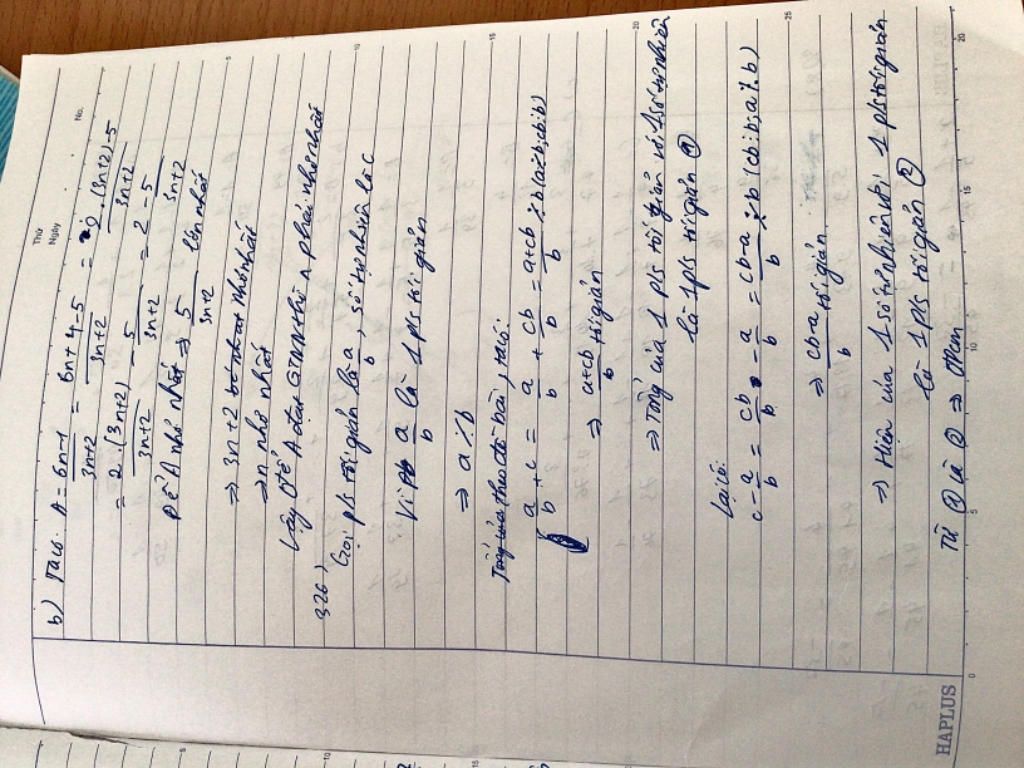 Thứ
Ngày
No.
b) Ta có: A = 6n-1/3n+2 = 6n+4-5/3n+2 = 2.(3n+2)-5/3n+2
= 2.(3n+2)/3n+2 - 5/3n+2 = 2 - 5/3n+2
Để A nhỏ nhất => 5/3n+2 lớn nhất
=> 3n+2 nhỏ nhất
=> n nhỏ nhất
Vậy để A đạt GTNN thì n phải nhỏ nhất
326)
Gọi p/s tối giản là a/b, số tự nhiên là c
Vì a/b là 1 p/s tối giản
=> a ⋮̸ b
Tổng của theo đề bài, ta có:
a/b + c = a/b + cb/b = a+cb/b ⋮̸ b (a ⋮̸ b; cb ⋮ b)
=> a+cb/b tối giản
=> Tổng của 1 p/s tối giản với 1 số tự nhiên
là 1 p/s tối giản ①
Lại có:
c - a/b = cb/b - a/b = cb-a/b ⋮̸ b (cb ⋮ b; a ⋮̸ b)
=> cb-a/b tối giản
=> Hiệu của 1 số tự nhiên với 1 p/s tối giản
là 1 p/s tối giản ②
Từ ① và ② => Đpcm
HAPLUS
0
5
10
15
20